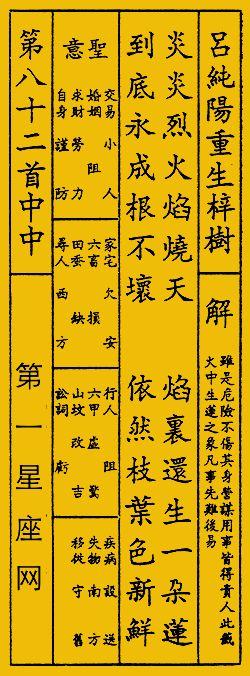 呂純陽重生梓樹
解
雖是危險不傷其身營謀用事皆得貴人此籤
火中生蓮之象凡事先難後易
炎炎烈火焰燒天
焰裏還生一朵蓮
到底永成根不壞
依然枝葉色新鮮
聖意
交易 小人
婚姻 阻
求財 勞力
自身 謹防
家宅 欠安
六畜 損
田蚕 缺
尋人 西方
行人 阻
六甲 虛驚
山坟 改吉
訟詞 虧
疾病 設送
失物 南方
移徙 守舊
第八十二首中中
第一星座网